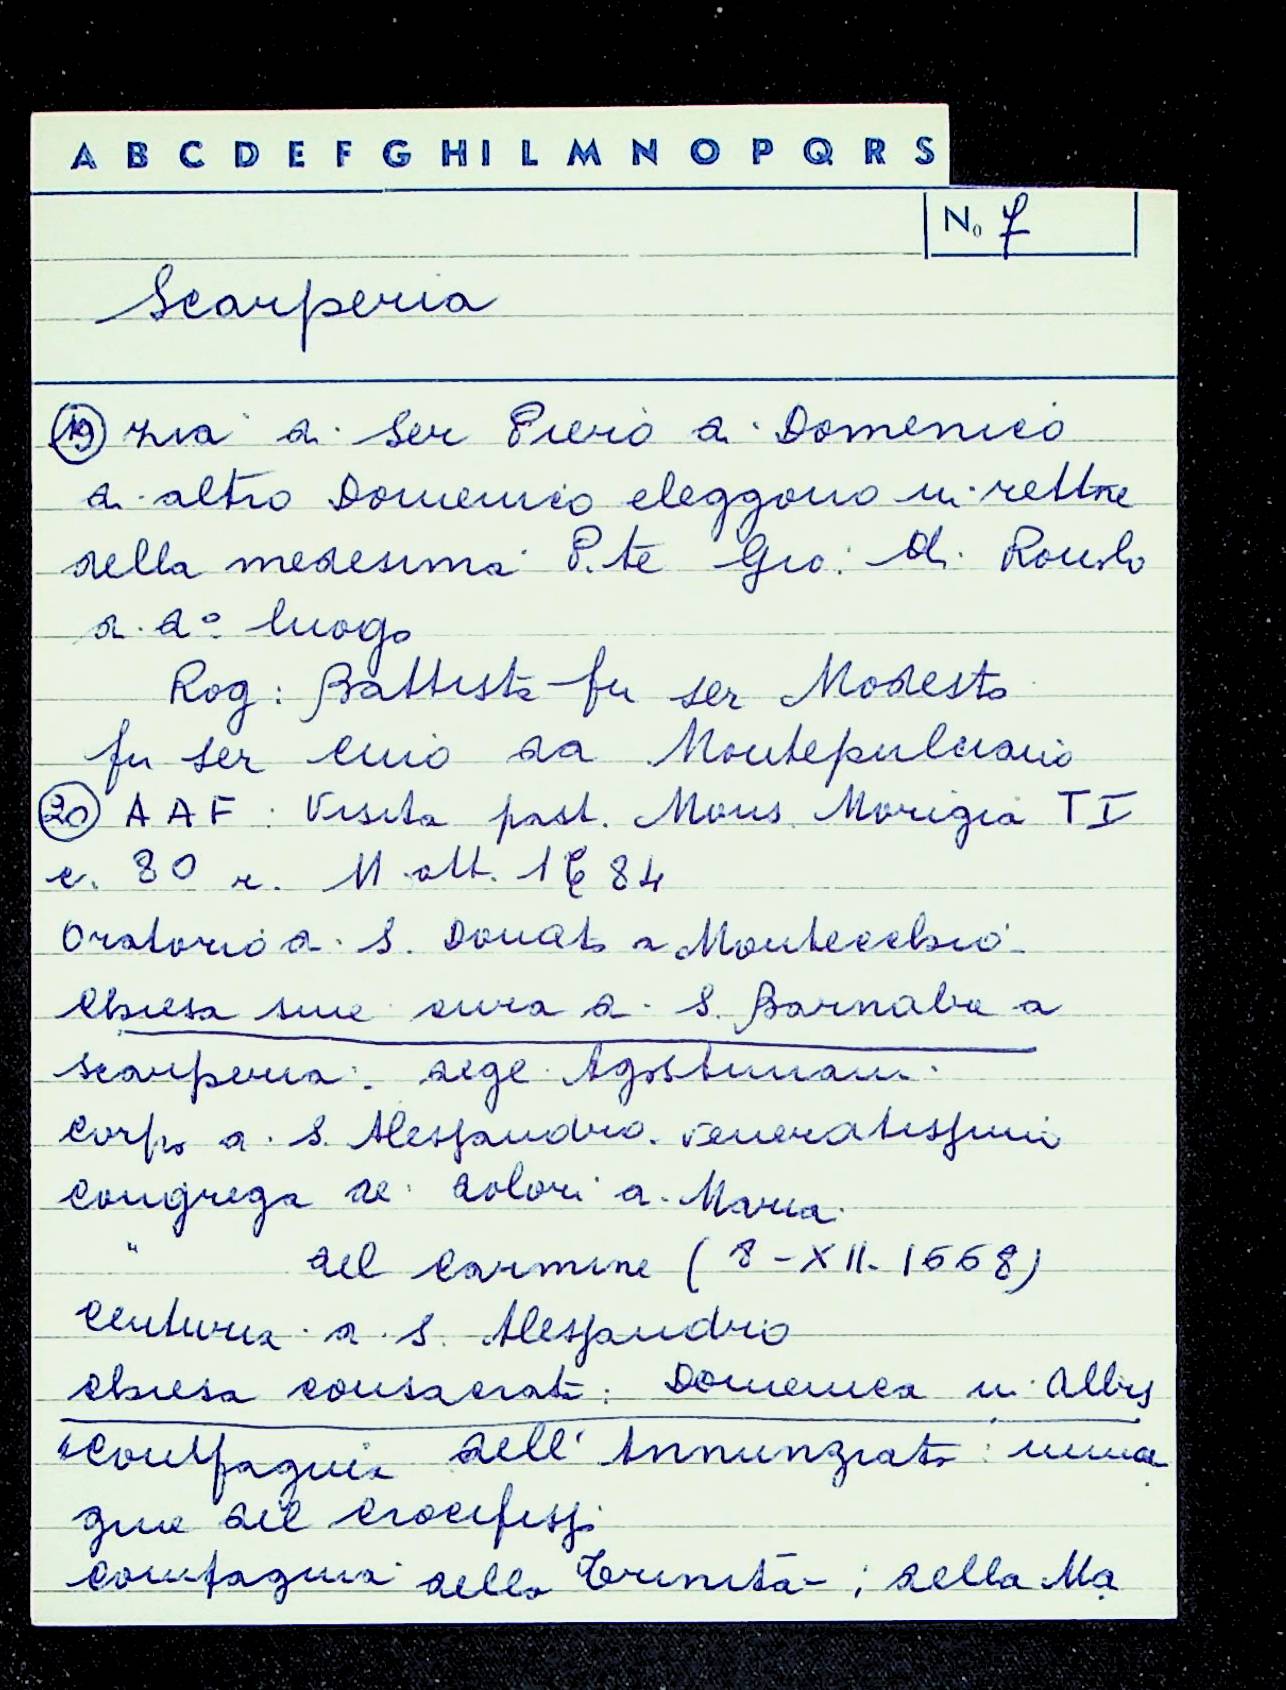 A B C D E F G H I L M N O P Q R S
No 7
Scarperia
19 zia di Ser Piero di Domenico
di altro Domenico eleggono in rettore
della medesima P.te Gio: di
di do luogo
Rog: Battista fu ser Modesto
fu ser Cino da Montepulciano
20 AAF: Visita past. Mons. Morigia T I
c. 80 r. 11 ott. 1684
Oratorio di S. Donato a Montecchio
Chiesa sine cura di S. Barnaba a
Scarperia: degl' Agostiniani
Corpo di S. Alessandro. veneratissimo
Congrega de' dolori di Maria
" del Carmine (8-XII-1668)
Centuria di S. Alessandro
Chiesa consacrata: Domenica in Albis
Compagnia dell' Annunziata: imma
gine del Crocifisso
Compagnia della Trinità; della Ma